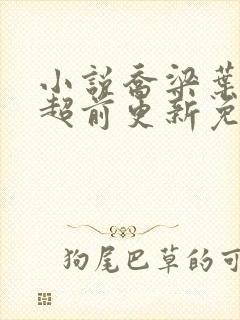 小说乔梁葉
超前更新免
狗尾巴草的可